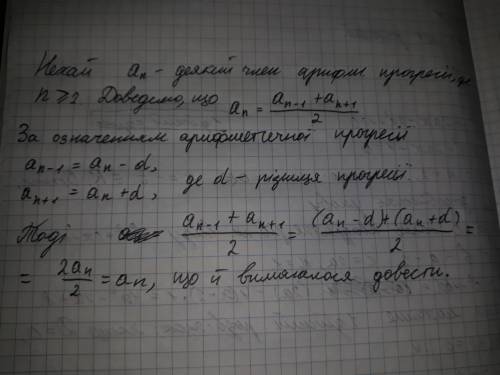 Нехай aₙ - деякий член арифм. прогресії, де
n ⩾ 1 Доведемо, що aₙ = (aₙ₋₁ + aₙ₊₁)/2
За означенням арифметичної прогресії
aₙ₋₁ = aₙ - d,
aₙ₊₁ = aₙ + d, де d - різниця прогресії.
Тоді (aₙ₋₁ + aₙ₊₁)/2 = ((aₙ - d) + (aₙ + d))/2 =
= 2aₙ/2 = aₙ, що й вимагалося довести.